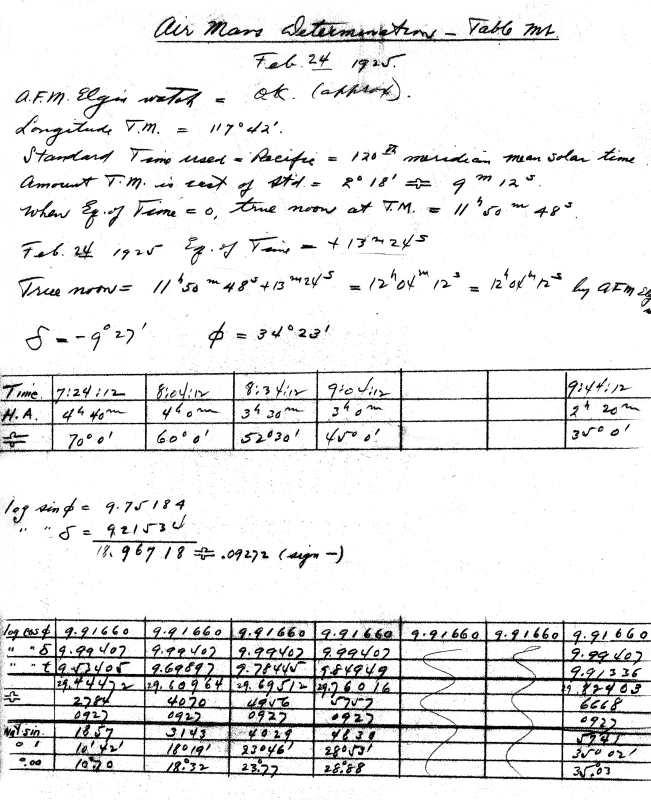 Air Mass Determination - Table Mt.
Feb. 24 1925.
A.F.M. Elgin watch = OK. (approx).
Longitude T.M. = 117° 42'.
Standard Time used = Pacific = 120th meridian mean solar time
Amount T.M. is east of std. = 2° 18' ≎ 9m 12s.
When Eq. of Time = 0, true noon at T.M. = 11h 50m 48s.
Feb. 24 1925 Eq. of Time = +13m 24s
True noon = 11h 50m 48s + 13m 24s = 12h 04m 12s = 12h 04m 12s by AFM Elg
δ = -9° 27' φ = 34° 23'
Time 7:24:12 8:04:12 8:34:12 9:04:12 9:44:12
H.A. 4h 40m 4h 0m 3h 30m 3h 0m 2h 20m
≎ 70° 0' 60° 0' 52° 30' 45° 0' 35° 0'
log sin φ = 9.75184
" " δ = 9.21534
18.96718 ≎ .09272 (sign -)
log cos φ 9.91660 9.91660 9.91660 9.91660 9.91660 9.91660 9.91660
" " δ 9.99407 9.99407 9.99407 9.99407 9.99407
" " t 9.53405 9.69897 9.78445 9.84949 9.91336
29.44472 29.60964 29.69512 29.76016 29.82403
≎ 2784 4070 4956 5757 6668
0927 0927 0927 0927 0927
Nat sin. 1857 3143 4029 4830 5741
° ' 10° 42' 18° 19' 23° 46' 28° 53' 35° 02'
°.00 10.70 18.32 23.77 28.88 35.03